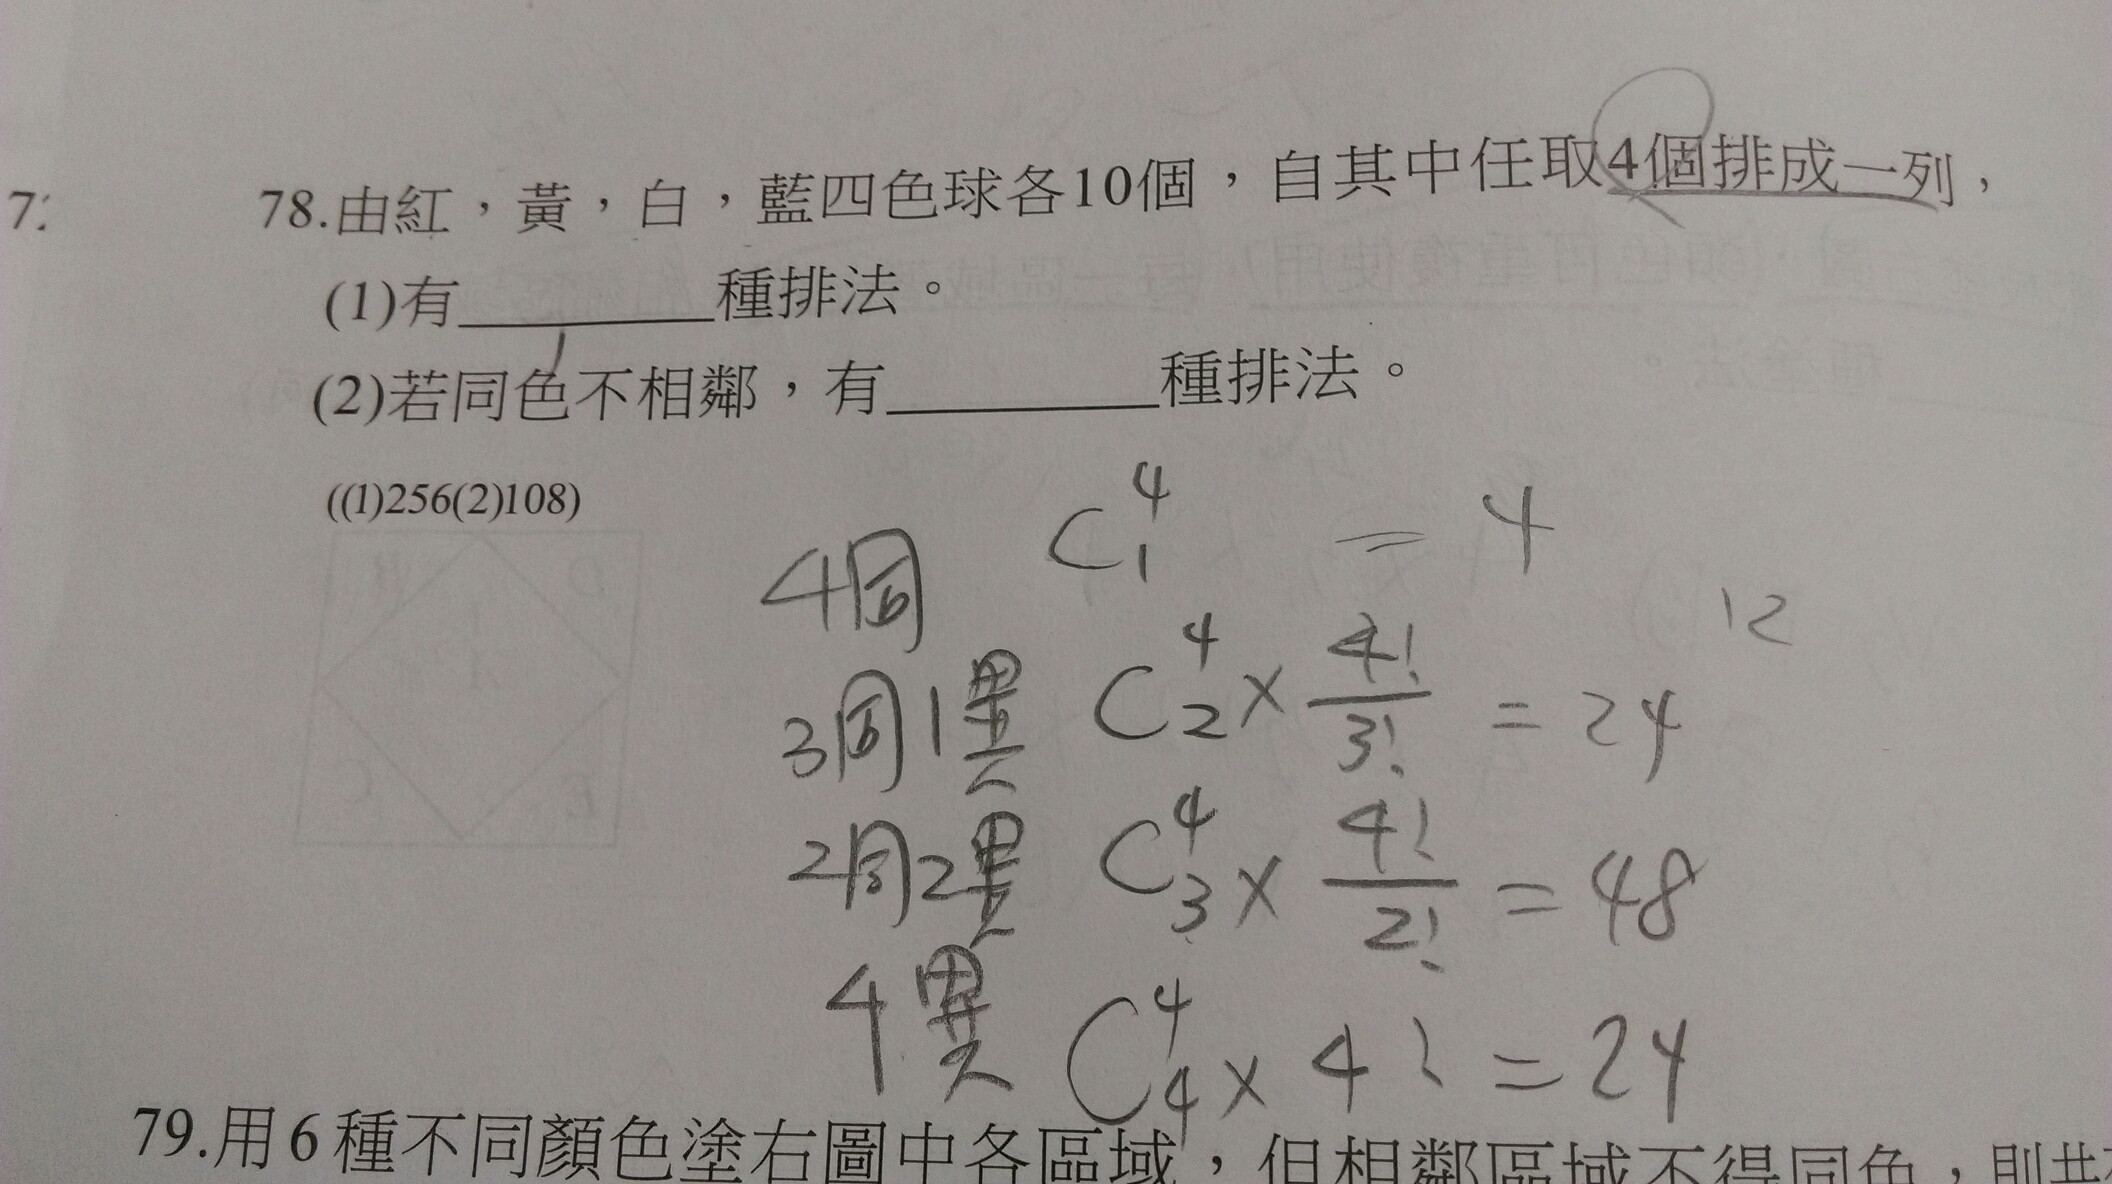 78.由紅，黃，白，藍四色球各10個，自其中任取4個排成一列，
7
(1)有________種排法。
(2)若同色不相鄰，有________種排法。
((1)256(2)108)
4同 C⁴₁ = 4
12
3同1異 C⁴₂ × 4!/3! = 24
2同2異 C⁴₃ × 4!/2! = 48
4異 C⁴₄ × 4! = 24
79.用6種不同顏色塗右圖中各區域，但相鄰區域不得同色，則共